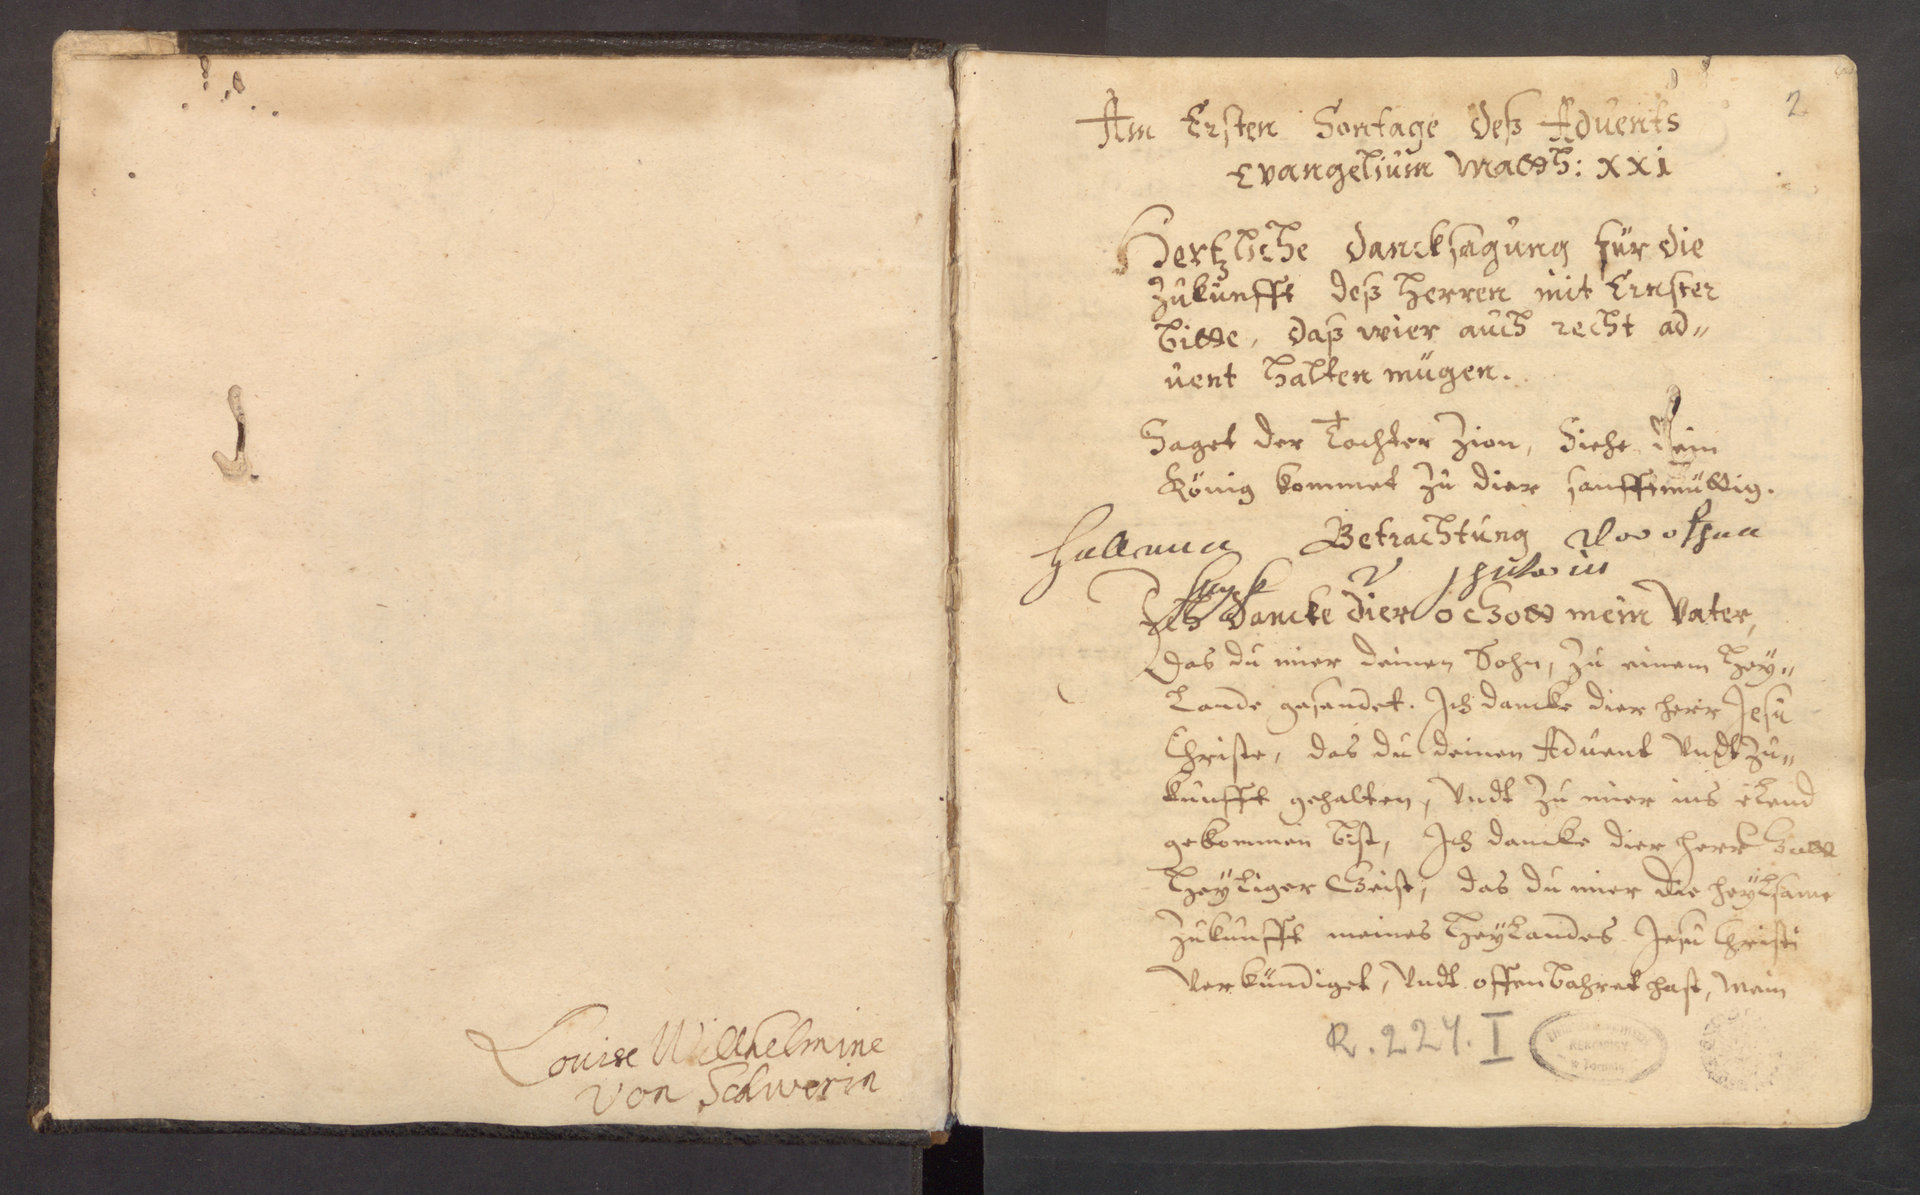 Louise Willhelmine
von Schwerin
2
Am Ersten Sontage deß Advents
Evangelium Matth: XXI
Hertzliche dancksagung für die
Zukunfft deß Herren mit Ernster
bitte, daß wier auch recht ad„
uent halten mügen.
Saget der Tochter Zion, Siehe dein
König kommet zu dier sanfftmüttig.
Betrachtung
Ich dancke dier o Gott mein Vater,
das du mier deinen Sohn, zu einem Hey„
lande gesandet. Ich dancke dier herr Jesu
Christe, das du deinen Aduent Vndt Zu„
kunfft gehalten, Vndt zu mier ins elend
gekommen bist, Ich dancke dier herr Gott
heyliger Geist, das du mier die heylsame
Zukunfft meines Heylandes Jesu Christi
Verkündiget, Vndt offenbahret hast, Mein
R. 224. I